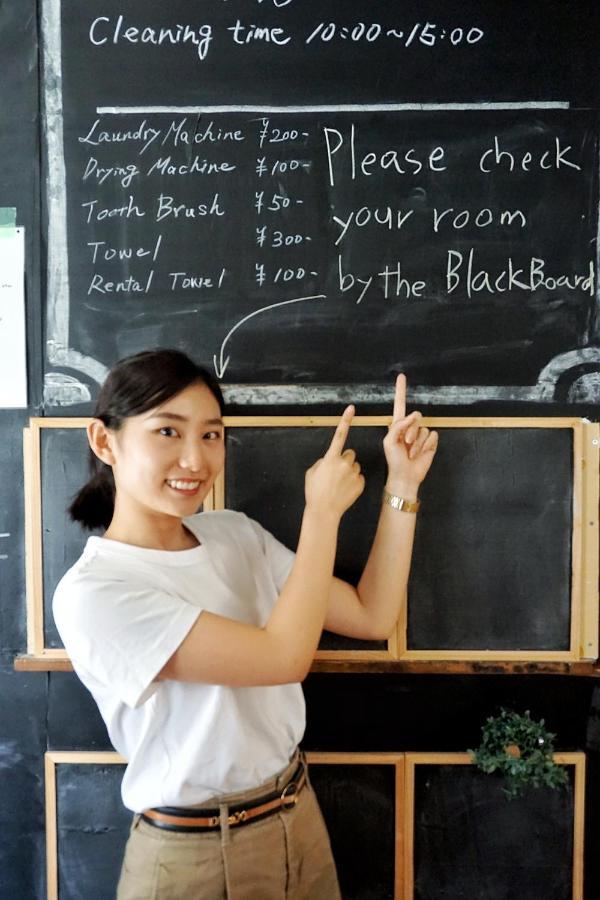 Cleaning time 10:00~15:00
Laundry Machine ¥200-
Drying Machine ¥100-
Tooth Brush ¥50-
Towel ¥300-
Rental Towel ¥100-
Please check
your room
by the BlackBoard